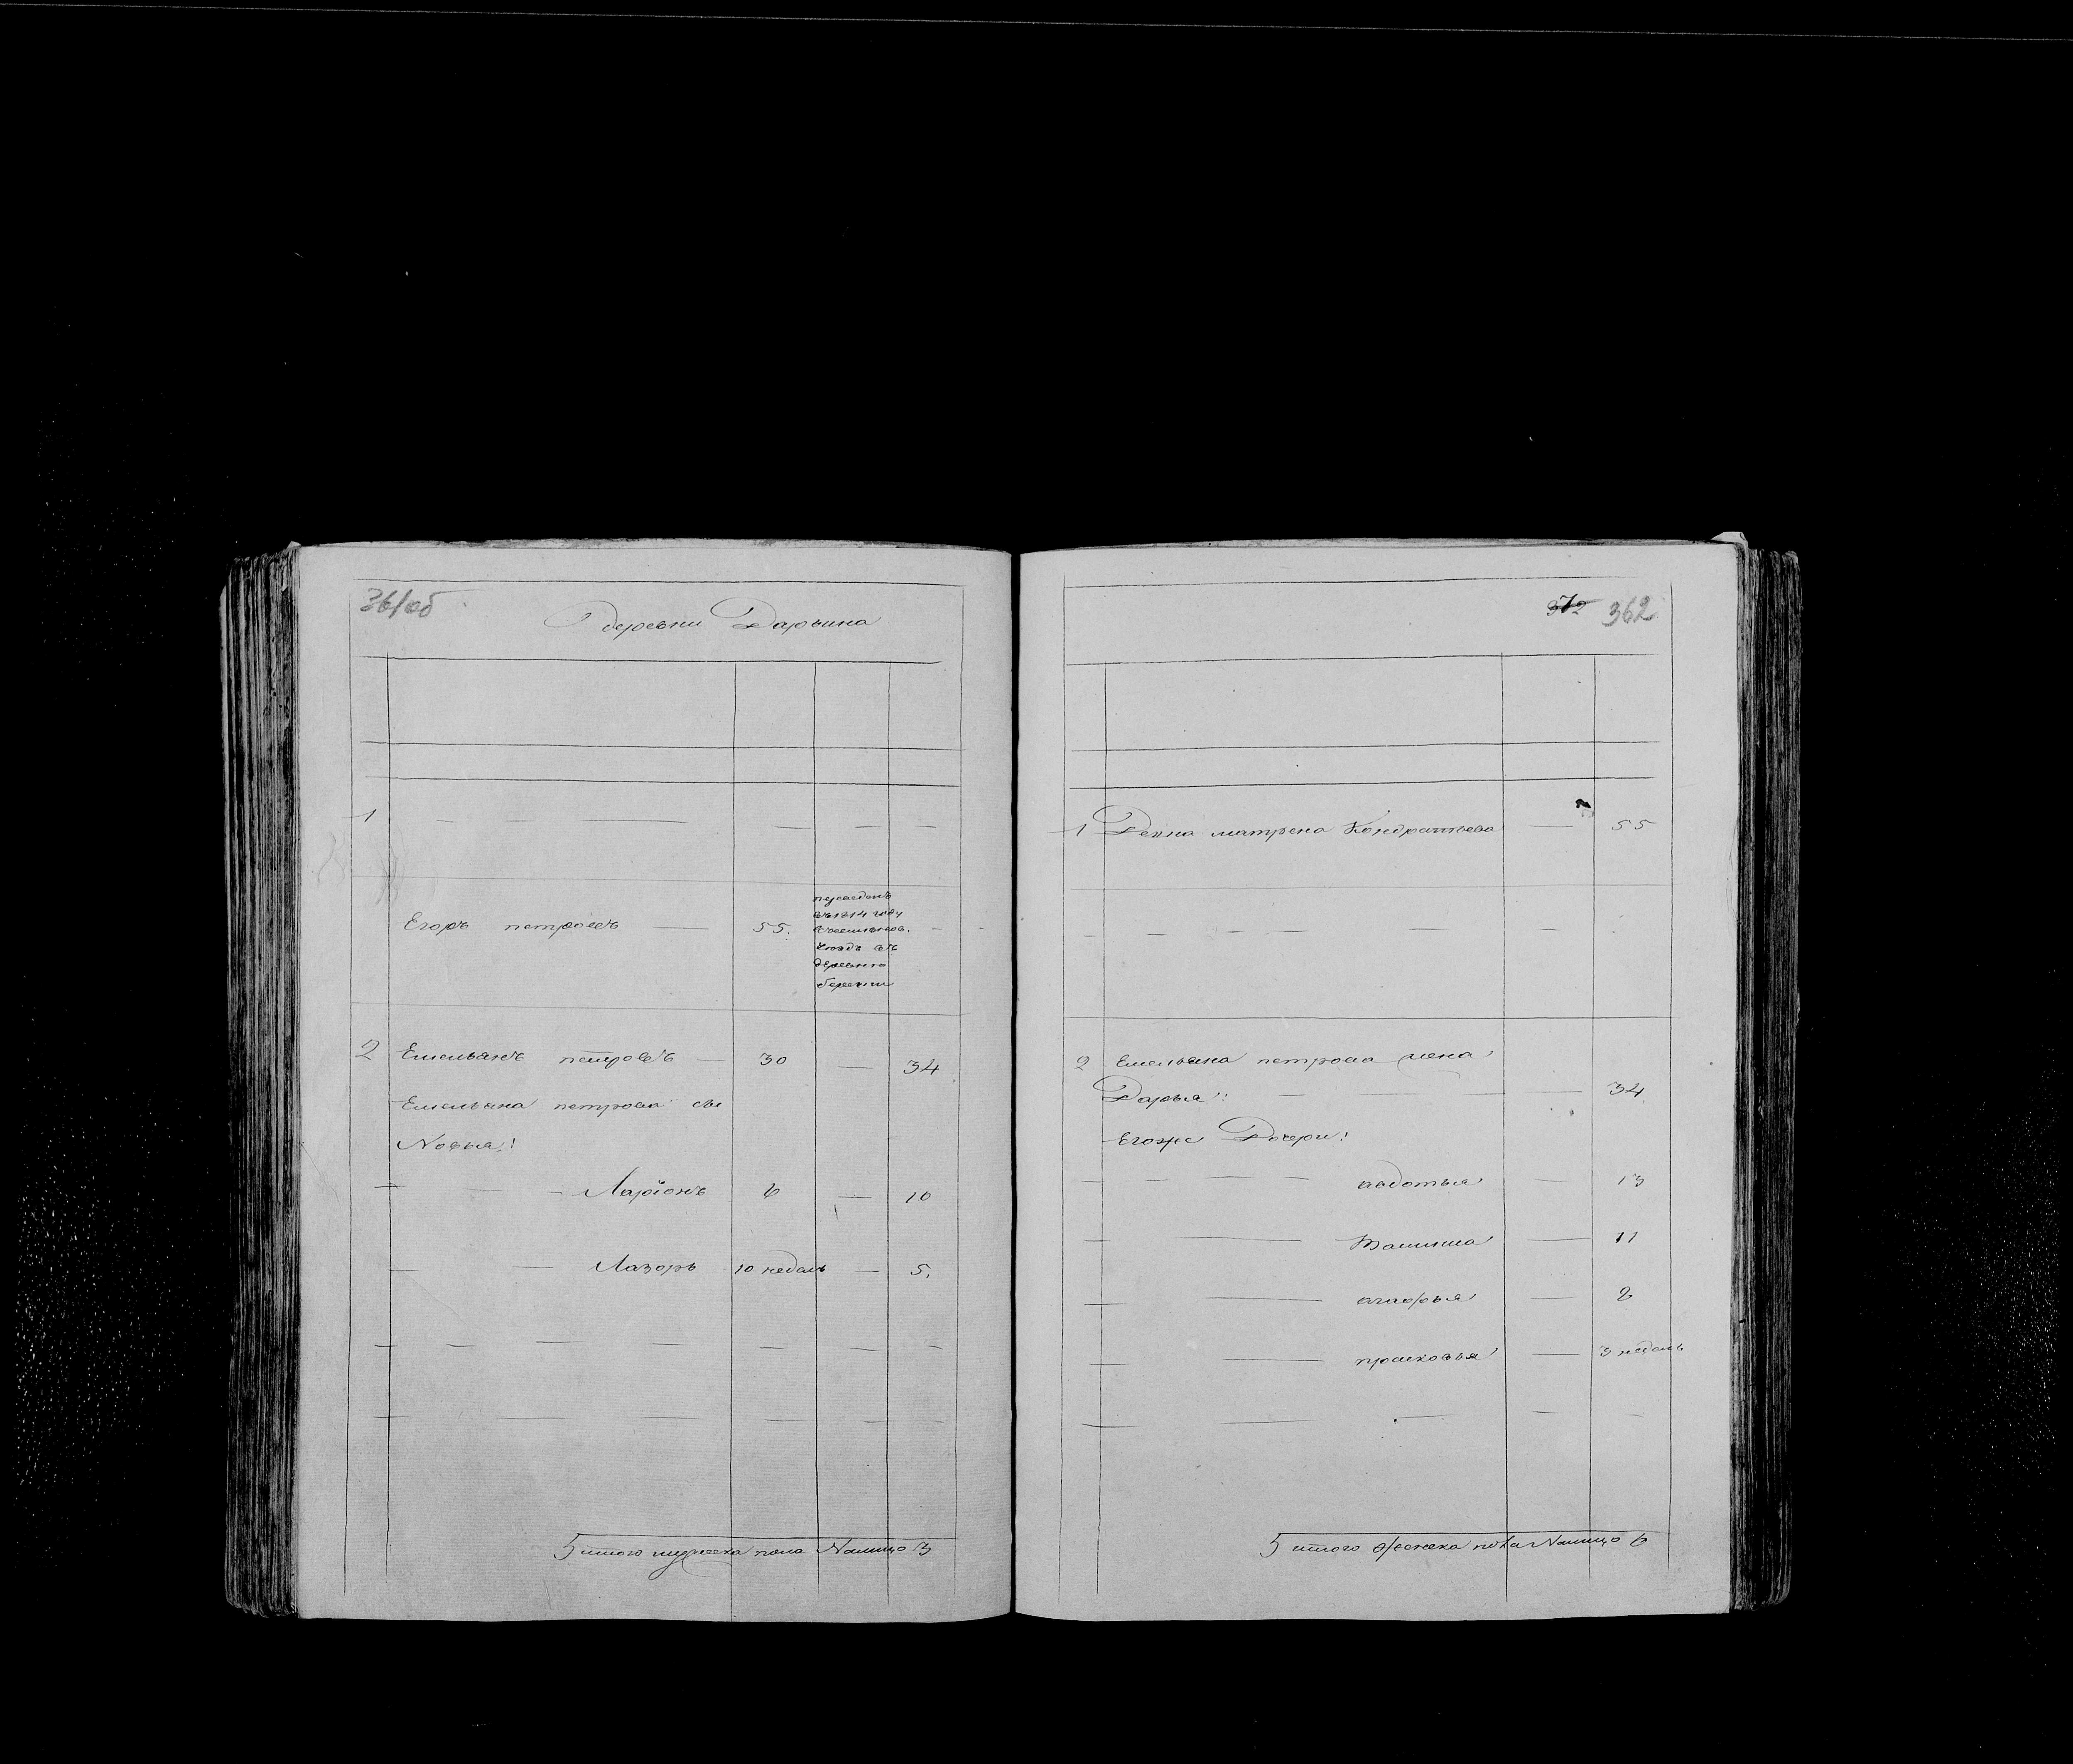 361об
деревни Дарьина
1
Егоръ петровъ 55.
въ 1814 году
уездъ въ
деревню
2 Емельянъ петровъ 30 34
Емельяна петрова сы
Новья:
Ларiонъ 6 10
Лазорь 10 недель 5.
итого мужеска пола Налицо 3
372 362
1 матрена Кондратьева 55
2 Емельяна петрова жена
Дарья: 34
Егоже Дочери:
авдотья 13
11
агафья 8
прасковья 3 недель
итого женска пола Налицо 6